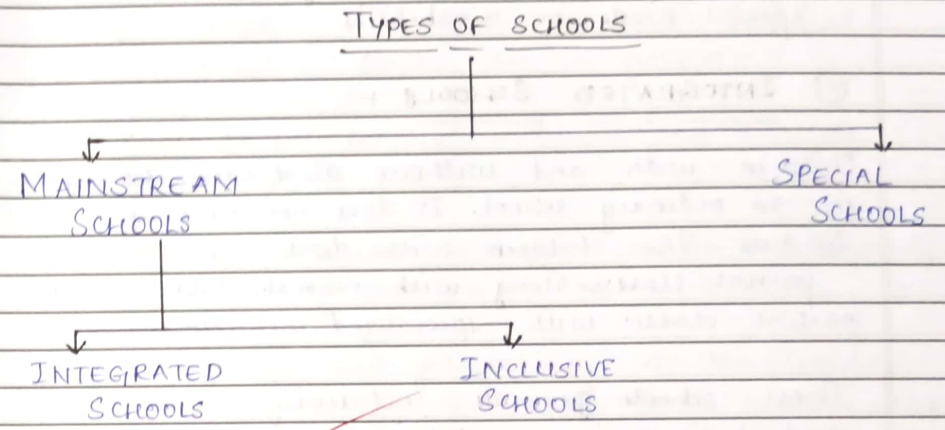 TYPES OF SCHOOLS
MAINSTREAM
SCHOOLS
SPECIAL
SCHOOLS
INTEGRATED
SCHOOLS
INCLUSIVE
SCHOOLS